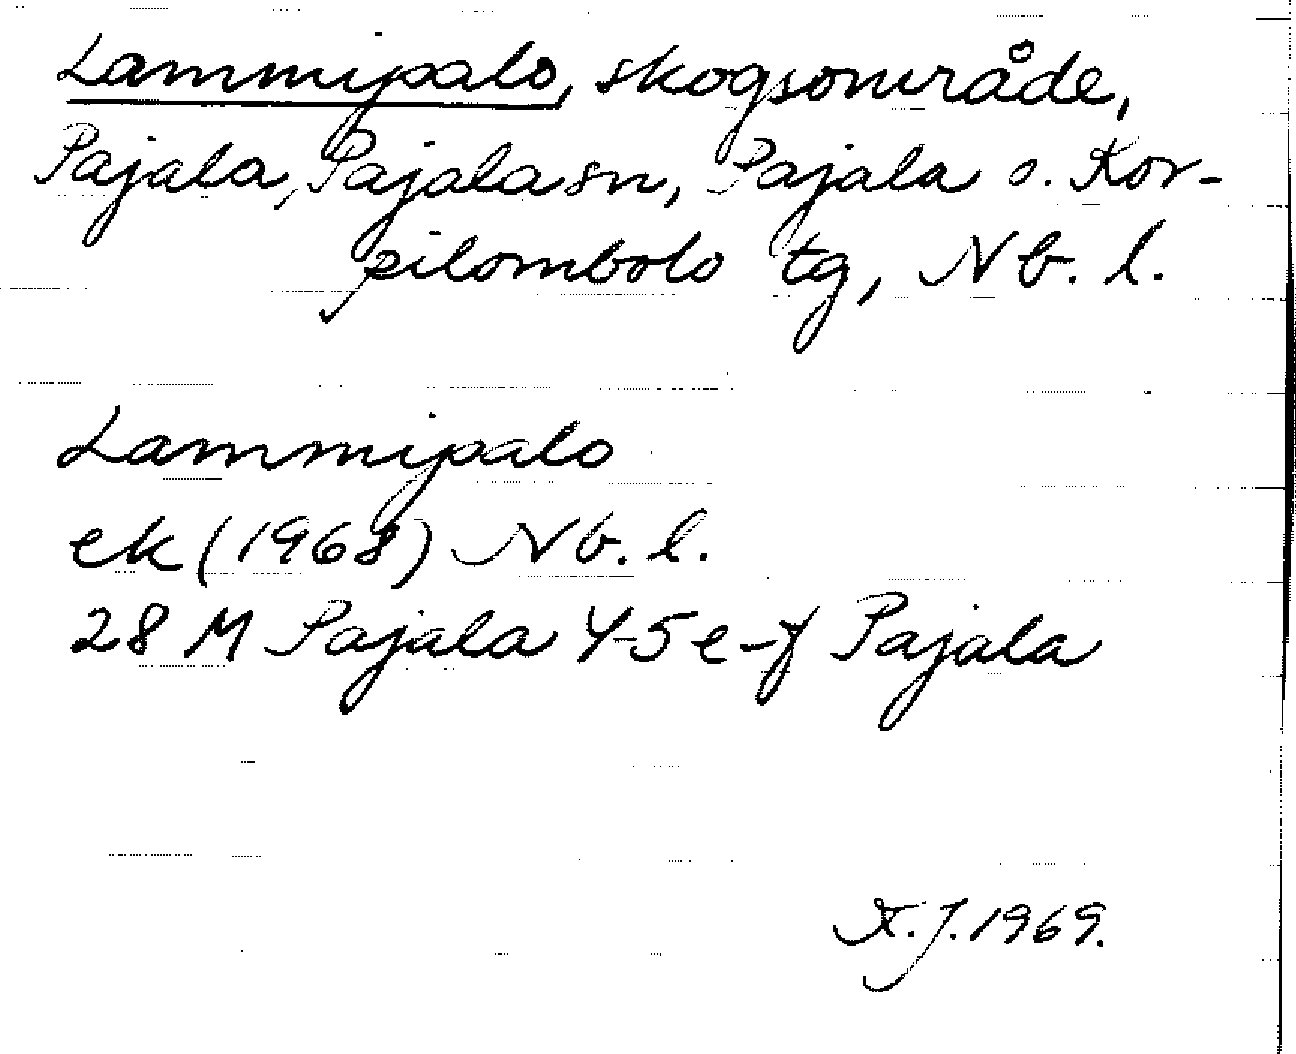 Lammipalo, skogsområde,
Pajala, Pajala sn, Pajala o. Kor-
pilombolo tg, Nb. l.
Lammipalo
ek (1968) Nb. l.
28 M Pajala 4-5 e-f Pajala
J. 1969.